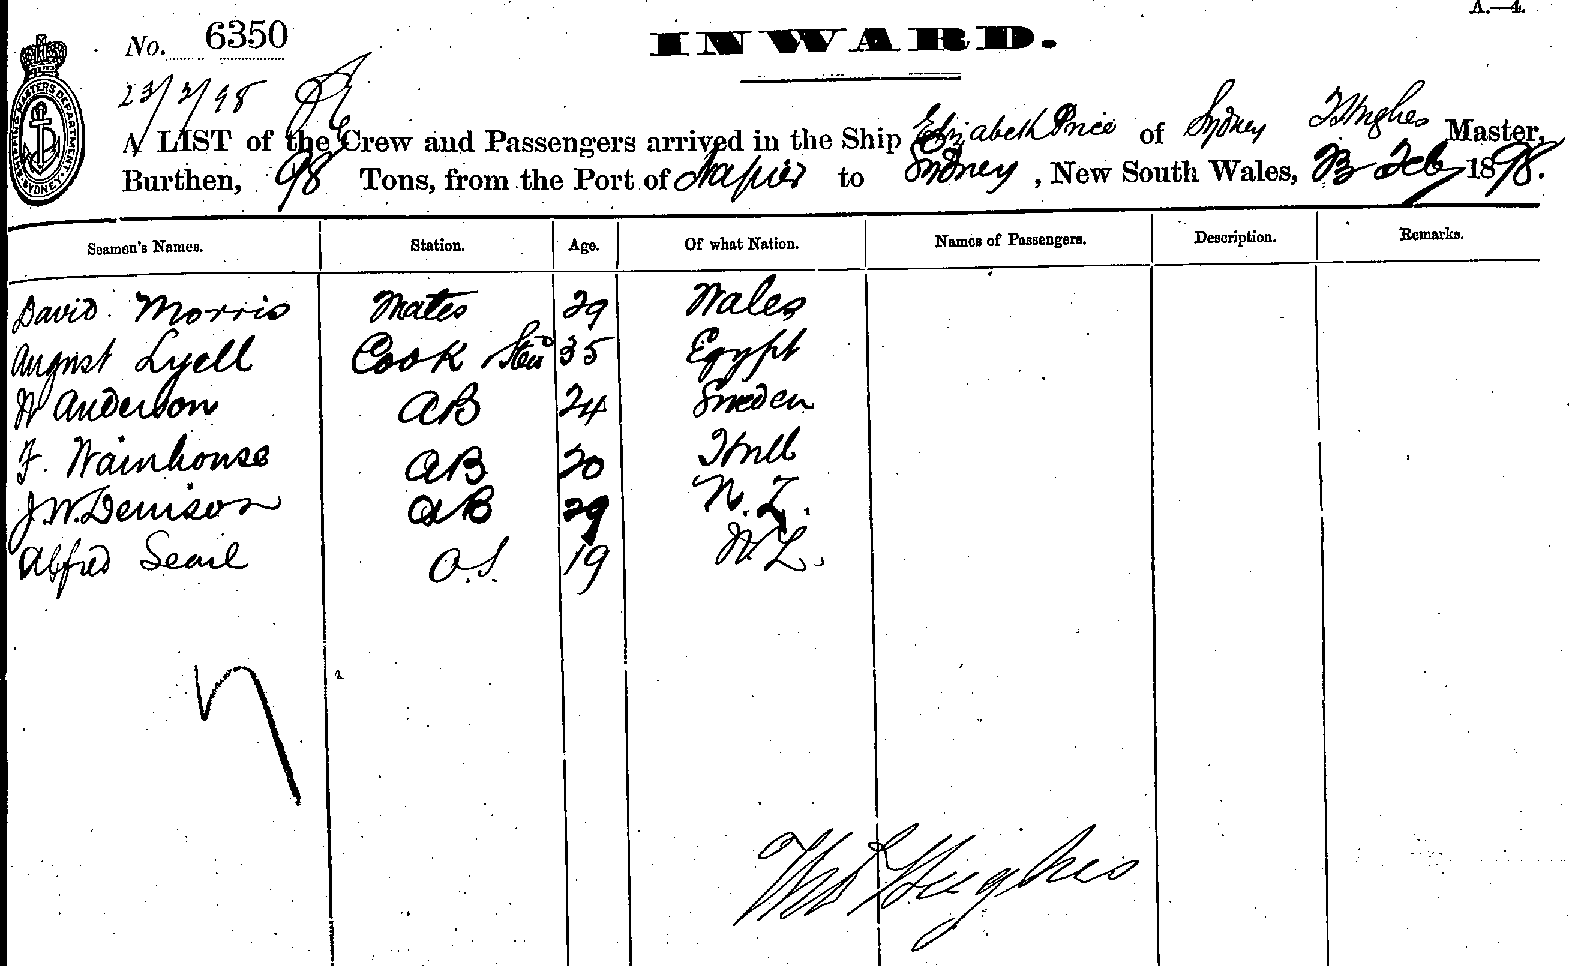 A.—4.
No. 6350
INWARD.
23/2/98
SHIPPING MASTERS DEPARTMENT SYDNEY
A LIST of the Crew and Passengers arrived in the Ship Elizabeth Price of Sydney T Hughes Master,
Burthen, 98 Tons, from the Port of Napier to Sydney, New South Wales, 23 Feb 1898.
Seamen's Names. Station. Age. Of what Nation. Names of Passengers. Description. Remarks.
David Morris Mates 29 Wales
August Lyell Cook Stewd 35 Egypt
W Anderson AB 24 Sweden
F. Wainhouse AB 20 Hull
J.W. Denison AB 29 N.Z.
Alfred Searl O.S. 19 N.Z.
Thos Hughes